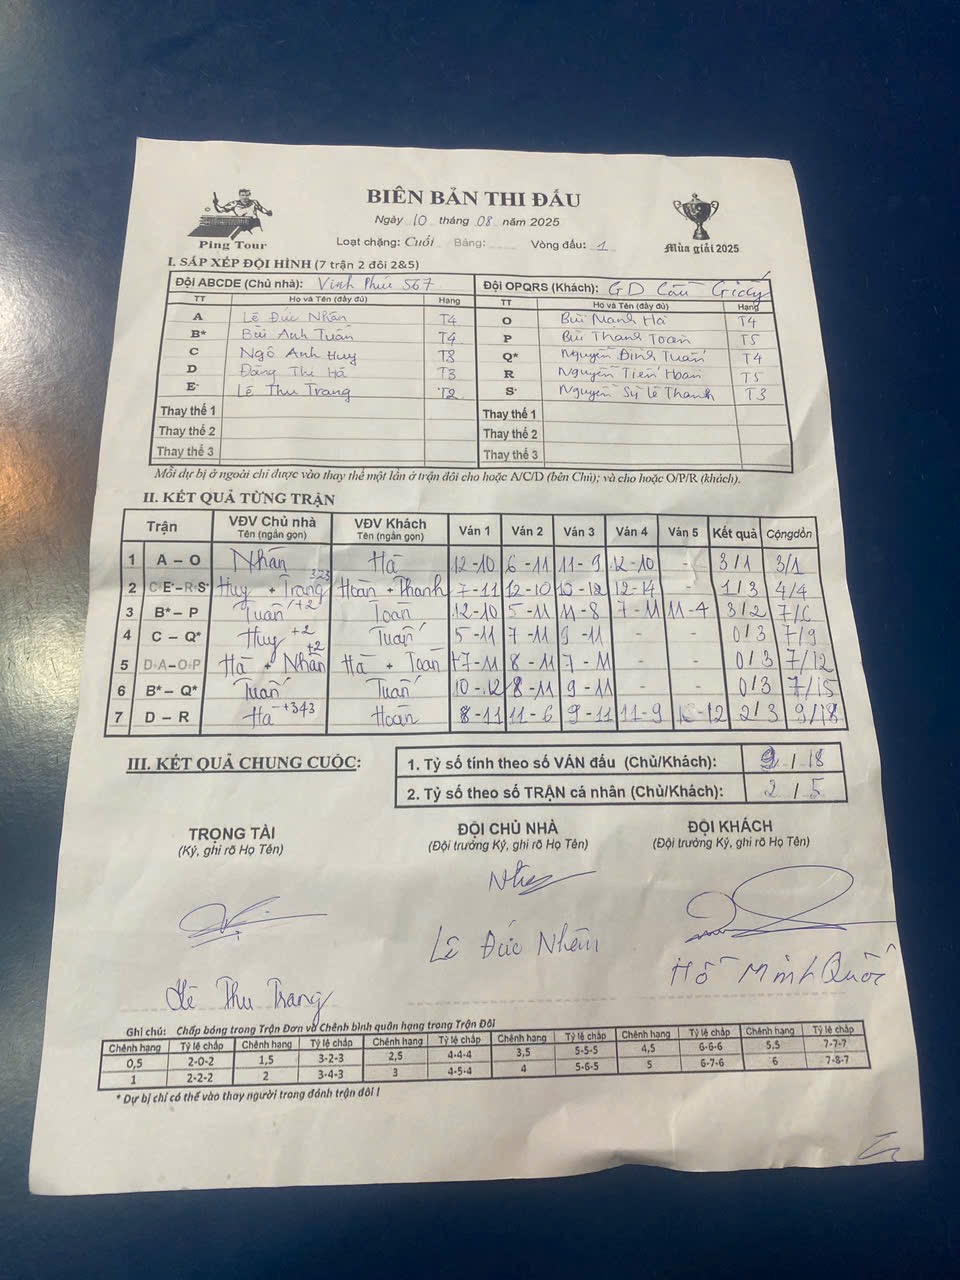 BIÊN BẢN THI ĐẤU
Ngày 10 tháng 08 năm 2025
Ping Tour
Loạt chặng: Cuối Bảng: Vòng đấu: 1
Mùa giải 2025
I. SẮP XẾP ĐỘI HÌNH (7 trận 2 đôi 2&5)
Đội ABCDE (Chủ nhà): Vĩnh Phúc 567 Đội OPQRS (Khách): GD Cầu Giấy
TT Họ và Tên (đầy đủ) Hạng TT Họ và Tên (đầy đủ) Hạng
A Lê Đức Nhân T4 O Bùi Mạnh Hà T4
B* Bùi Anh Tuấn T4 P Bùi Thanh Toàn T5
C Ngô Anh Huy T8 Q* Nguyễn Đình Tuấn T4
D Đặng Thị Hà T3 R Nguyễn Tiến Hoàn T5
E* Lê Thu Trang T2 S* Nguyễn Sỹ Lê Thanh T3
Thay thế 1 Thay thế 1
Thay thế 2 Thay thế 2
Thay thế 3 Thay thế 3
Mỗi dự bị ở ngoài chỉ được vào thay thế một lần ở trận đôi cho hoặc A/C/D (bên Chủ); và cho hoặc O/P/R (khách).
II. KẾT QUẢ TỪNG TRẬN
Trận VĐV Chủ nhà Tên (ngắn gọn) VĐV Khách Tên (ngắn gọn) Ván 1 Ván 2 Ván 3 Ván 4 Ván 5 Kết quả Cộngdồn
1 A – O Nhân Hà 12-10 6-11 11-9 12-10 - 3/1 3/1
2 C E*-R S* Huy + Trang 323 Hoàn + Thanh 7-11 12-10 10-12 12-14 - 1/3 4/4
3 B* – P Tuấn +2 Toàn 12-10 5-11 11-8 7-11 11-4 3/2 7/6
4 C – Q* Huy +2 Tuấn 5-11 7-11 9-11 - - 0/3 7/9
5 D A – O P Hà + Nhân +2 Hà + Toàn 7-11 8-11 7-11 - - 0/3 7/12
6 B* – Q* Tuấn Tuấn 10-12 8-11 9-11 - - 0/3 7/15
7 D – R Hà +343 Hoàn 8-11 11-6 9-11 11-9 -12 2/3 9/18
III. KẾT QUẢ CHUNG CUỘC:
1. Tỷ số tính theo số VÁN đấu (Chủ/Khách): 9/18
2. Tỷ số theo số TRẬN cá nhân (Chủ/Khách): 2/5
TRỌNG TÀI ĐỘI CHỦ NHÀ ĐỘI KHÁCH
(Ký, ghi rõ Họ Tên) (Đội trưởng Ký, ghi rõ Họ Tên) (Đội trưởng Ký, ghi rõ Họ Tên)
Lê Thu Trang Lê Đức Nhân Hồ Minh Quốc
Ghi chú: Chấp bóng trong Trận Đơn và Chênh bình quân hạng trong Trận Đôi
Chênh hạng Tỷ lệ chấp Chênh hạng Tỷ lệ chấp Chênh hạng Tỷ lệ chấp Chênh hạng Tỷ lệ chấp Chênh hạng Tỷ lệ chấp Chênh hạng Tỷ lệ chấp
0,5 2-0-2 1,5 3-2-3 2,5 4-4-4 3,5 5-5-5 4,5 6-6-6 5,5 7-7-7
1 2-2-2 2 3-4-3 3 4-5-4 4 5-6-5 5 6-7-6 6 7-8-7
* Dự bị chỉ có thể vào thay người trong đánh trận đôi !